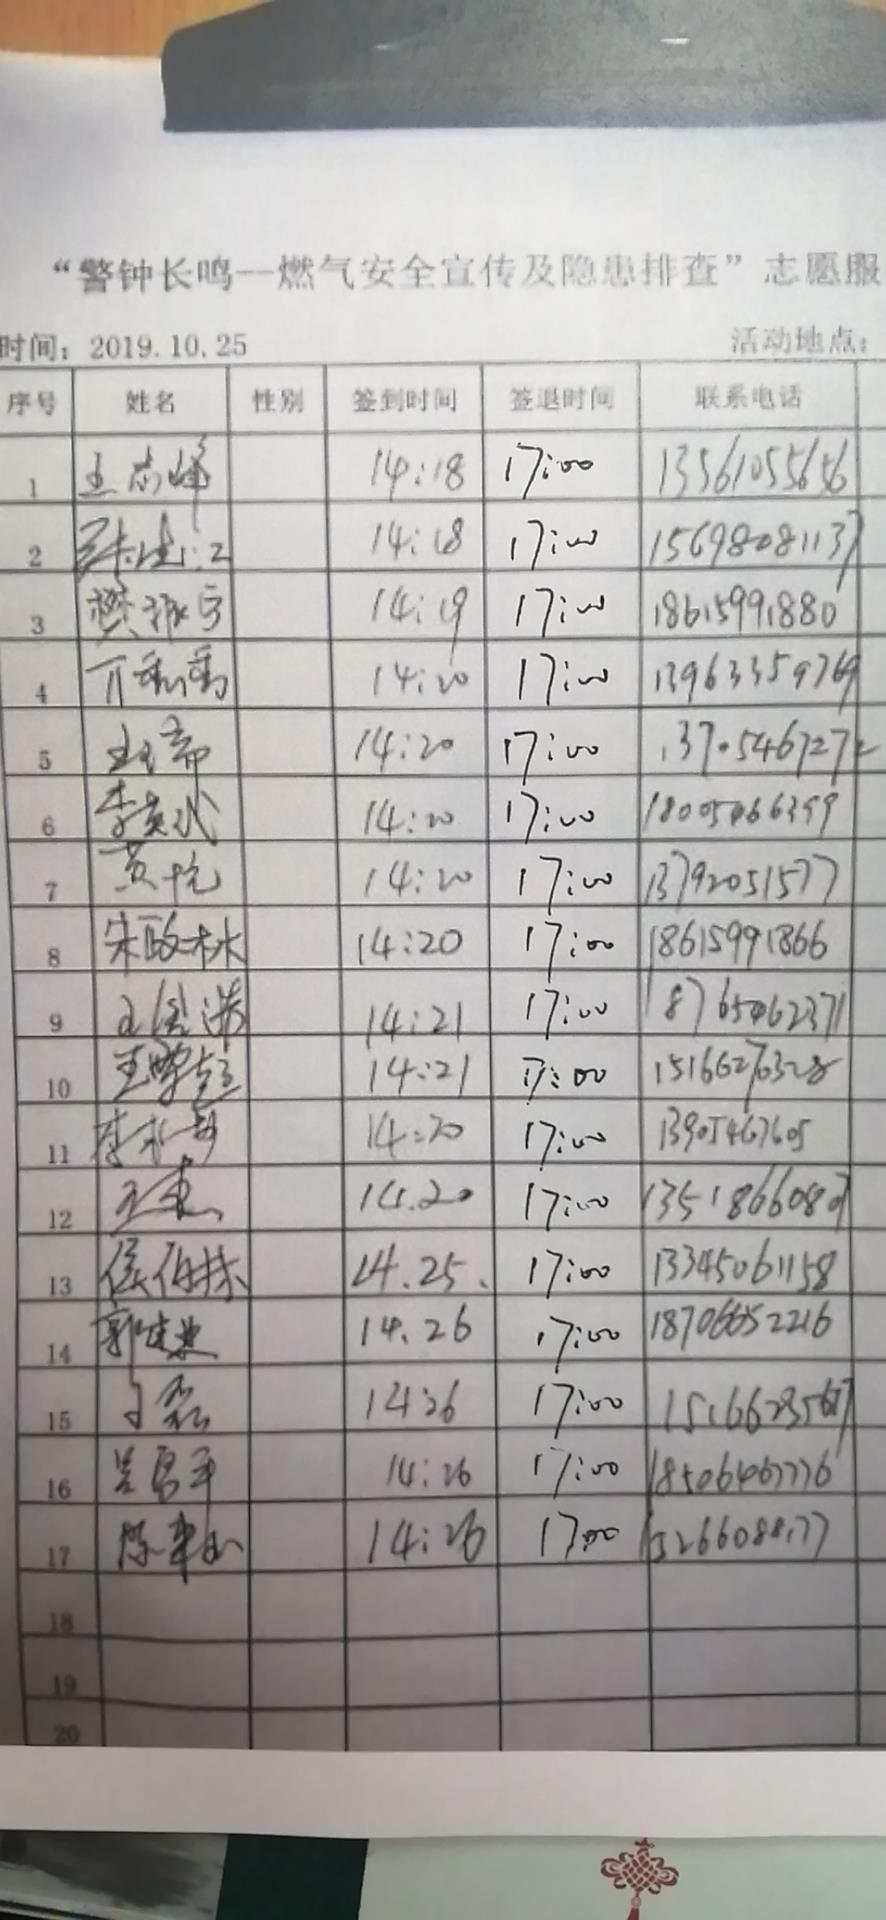 “警钟长鸣—燃气安全宣传及隐患排查”志愿服
时间：2019.10.25 活动地点：
序号 姓名 性别 签到时间 签退时间 联系电话
1 王志峰 14:18 17:00 13561055656
2 14:18 17:00 15698081137
3 樊振宇 14:19 17:00 18615991880
4 14:20 17:00 13963359769
5 14:20 17:00 13705467272
6 李英武 14:20 17:00 18005466399
7 黄悦 14:20 17:00 13792051577
8 宋政林 14:20 17:00 18615991866
9 14:21 17:00 18765462371
10 14:21 17:00 15166276328
11 14:20 17:00 13905467605
12 14.20 17:00
13 侯伯栋 14.25. 17:00 13345061158
14 郭建业 14.26 17:00 18706652216
15 14:26 17:00
16 吴昌平 14:26 17:00 18506467776
17 14:26 17:00 15266088177
18
19
20